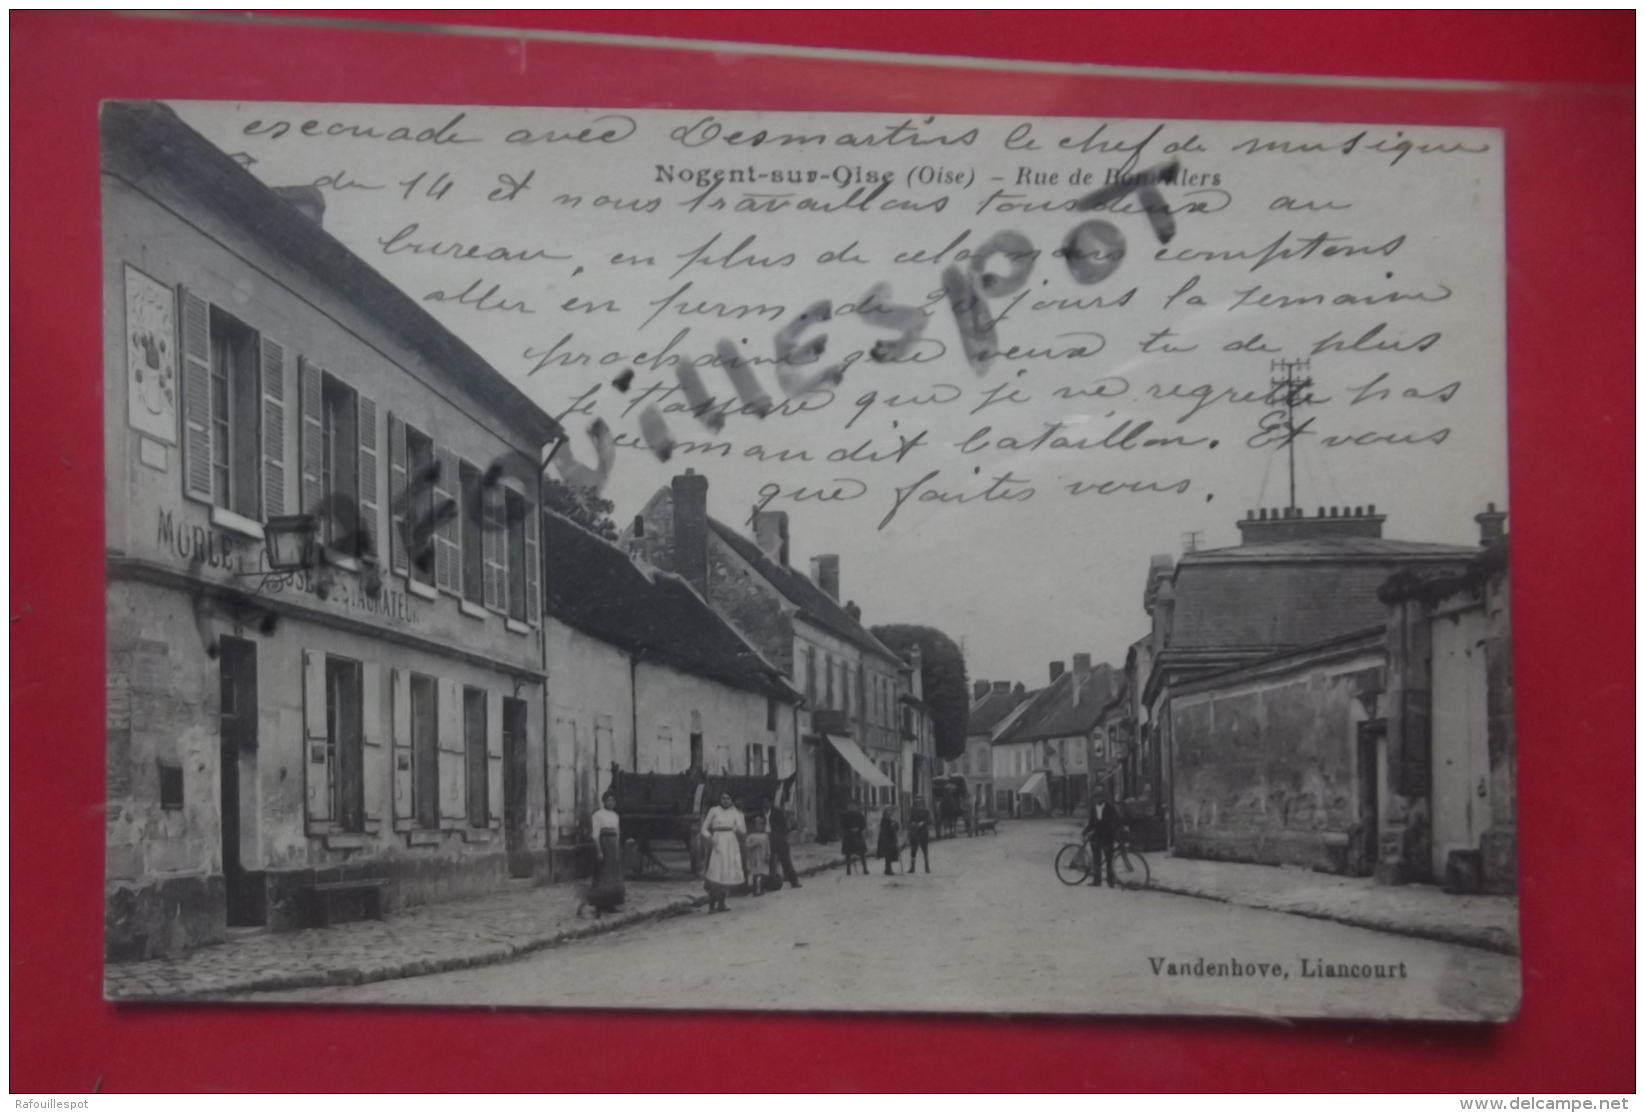 escouade avec Desmartins le chef de musique
Nogent-sur-Oise (Oise) - Rue de
du 14 et nous travaillons tous deux au
bureau, en plus de cela nous comptons
aller en perm. de 20 jours la semaine
prochaine que veux tu de plus
je t'assure que je ne regrette pas
ce maudit bataillon. Et vous
que faites vous.
RafouillespoT
MORLET RESTAURATEUR
Vandenhove, Liancourt
Rafouillespot
www.delcampe.net